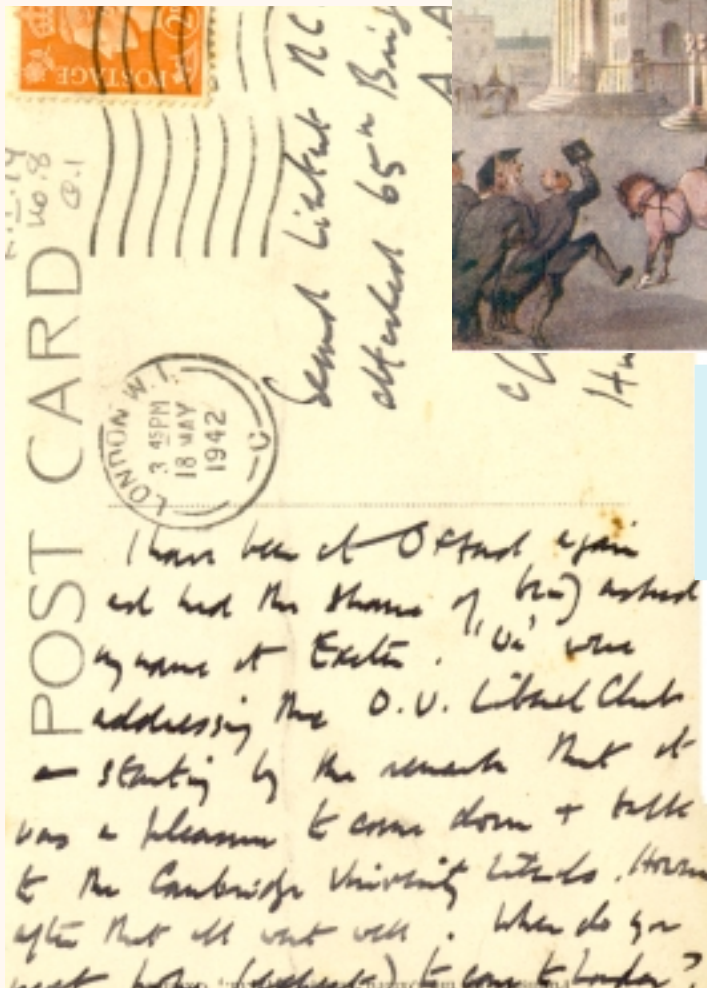 POSTAGE
No. 8
POST CARD
LONDON W.1.
3 45 PM
18 MAY
1942
C
Second Lieut RC
attached 65th
I have been at Oxford again
and had the shame of being asked
my name at Exeter. 'We' were
addressing the O.U. Liberal Club
starting by the remark that it
was a pleasure to come down + talk
to the Cambridge University Liberals. However
after that all went well. When do you
next to come to London?